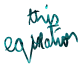 this
equation